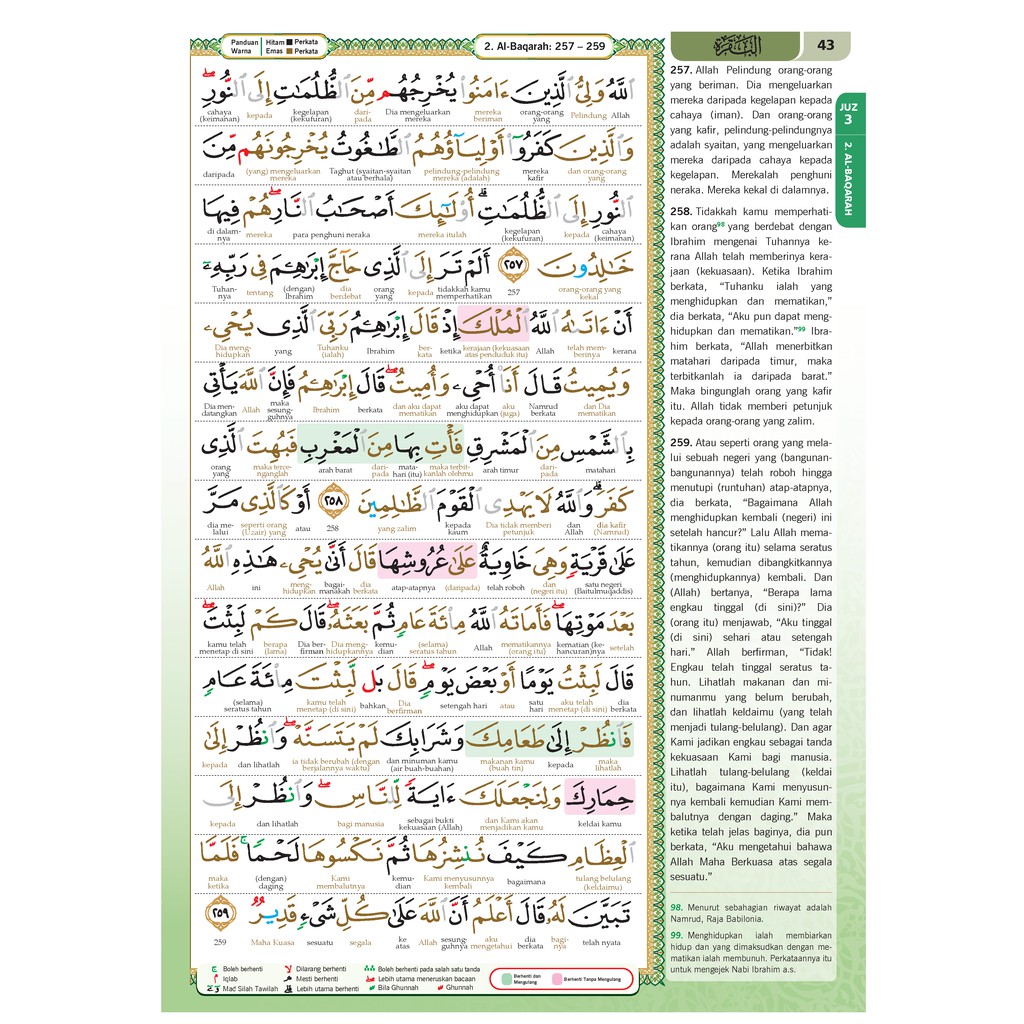 Panduan Warna
Hitam Perkata
Emas Perkata
2. Al-Baqarah: 257 – 259
البقرة
43
JUZ 3
2. AL-BAQARAH
اللَّهُ وَلِيُّ الَّذِينَ ءَامَنُوا يُخْرِجُهُم مِّنَ الظُّلُمَٰتِ إِلَى النُّورِ ۖ
cahaya (keimanan) kepada kegelapan (kekufuran) dari-pada Dia mengeluarkan mereka mereka beriman orang-orang yang Pelindung Allah
وَالَّذِينَ كَفَرُوٓا أَوْلِيَآؤُهُمُ الطَّٰغُوتُ يُخْرِجُونَهُم مِّنَ
daripada (yang) mengeluarkan mereka Taghut (syaitan-syaitan atau berhala) pelindung-pelindung mereka (adalah) mereka kafir dan orang-orang yang
النُّورِ إِلَى الظُّلُمَٰتِ ۗ أُولَٰٓئِكَ أَصْحَٰبُ النَّارِ ۖ هُمْ فِيهَا
di dalam-nya mereka para penghuni neraka mereka itulah kegelapan (kekufuran) kepada cahaya (keimanan)
خَٰلِدُونَ ٢٥٧ أَلَمْ تَرَ إِلَى الَّذِى حَآجَّ إِبْرَٰهِۦمَ فِى رَبِّهِۦٓ
Tuhan-nya tentang (dengan) Ibrahim dia berdebat orang yang kepada tidakkah kamu memperhatikan 257 orang-orang yang kekal
أَنْ ءَاتَىٰهُ اللَّهُ الْمُلْكَ إِذْ قَالَ إِبْرَٰهِۦمُ رَبِّىَ الَّذِى يُحْىِۦ
Dia meng-hidupkan yang Tuhanku (ialah) Ibrahim ber-kata ketika kerajaan (kekuasaan atas penduduk itu) Allah telah mem-berinya kerana
وَيُمِيتُ قَالَ أَنَا۠ أُحْىِۦ وَأُمِيتُ ۖ قَالَ إِبْرَٰهِۦمُ فَإِنَّ اللَّهَ يَأْتِى
Dia men-datangkan Allah maka sesung-guhnya Ibrahim berkata dan aku dapat mematikan aku dapat menghidupkan aku (juga) Namrud berkata dan Dia mematikan
بِالشَّمْسِ مِنَ الْمَشْرِقِ فَأْتِ بِهَا مِنَ الْمَغْرِبِ فَبُهِتَ الَّذِى
orang yang maka terce-nganglah arah barat dari-pada mata-hari (itu) maka terbit-kanlah olehmu arah timur dari-pada matahari
كَفَرَ ۗ وَاللَّهُ لَا يَهْدِى الْقَوْمَ الظَّٰلِمِينَ ٢٥٨ أَوْ كَالَّذِى مَرَّ
dia me-lalui seperti orang (Uzair) yang atau 258 yang zalim kepada kaum Dia tidak memberi petunjuk dan Allah dia kafir (Namrud)
عَلَىٰ قَرْيَةٍ وَهِىَ خَاوِيَةٌ عَلَىٰ عُرُوشِهَا قَالَ أَنَّىٰ يُحْىِۦ هَٰذِهِ اللَّهُ
Allah ini meng-hidupkan bagai-manakah dia berkata atap-atapnya (daripada) telah roboh dan (negeri itu) satu negeri (Baitulmuqaddis)
بَعْدَ مَوْتِهَا ۖ فَأَمَاتَهُ اللَّهُ مِا۟ئَةَ عَامٍ ثُمَّ بَعَثَهُۥ ۖ قَالَ كَمْ لَبِثْتَ ۖ
kamu telah menetap di sini berapa (lama) Dia ber-firman Dia meng-hidupkannya kemu-dian (selama) seratus tahun Allah mematikannya (orang itu) kematian (ke-hancuran)nya setelah
قَالَ لَبِثْتُ يَوْمًا أَوْ بَعْضَ يَوْمٍ ۖ قَالَ بَل لَّبِثْتَ مِا۟ئَةَ عَامٍ
(selama) seratus tahun kamu telah menetap (di sini) bahkan Dia berfirman setengah hari atau satu hari aku telah menetap (di sini) dia berkata
فَانظُرْ إِلَىٰ طَعَامِكَ وَشَرَابِكَ لَمْ يَتَسَنَّهْ ۖ وَانظُرْ إِلَىٰ
kepada dan lihatlah ia tidak berubah (dengan berjalannya waktu) dan minuman kamu (air buah-buahan) makanan kamu (buah tin) kepada maka lihatlah
حِمَارِكَ وَلِنَجْعَلَكَ ءَايَةً لِّلنَّاسِ ۖ وَانظُرْ إِلَى
kepada dan lihatlah bagi manusia sebagai bukti kekuasaan (Allah) dan Kami akan menjadikan kamu keldai kamu
الْعِظَامِ كَيْفَ نُنشِزُهَا ثُمَّ نَكْسُوهَا لَحْمًا ۚ فَلَمَّا
maka ketika (dengan) daging Kami membalutnya kemu-dian Kami menyusunnya kembali bagaimana tulang belulang (keldaimu)
تَبَيَّنَ لَهُۥ قَالَ أَعْلَمُ أَنَّ اللَّهَ عَلَىٰ كُلِّ شَىْءٍ قَدِيرٌ ٢٥٩
259 Maha Kuasa sesuatu segala ke atas Allah sesung-guhnya aku mengetahui dia berkata bagi-nya telah nyata
257. Allah Pelindung orang-orang
yang beriman. Dia mengeluarkan
mereka daripada kegelapan kepada
cahaya (iman). Dan orang-orang
yang kafir, pelindung-pelindungnya
adalah syaitan, yang mengeluarkan
mereka daripada cahaya kepada
kegelapan. Merekalah penghuni
neraka. Mereka kekal di dalamnya.
258. Tidakkah kamu memperhati-
kan orang98 yang berdebat dengan
Ibrahim mengenai Tuhannya ke-
rana Allah telah memberinya kera-
jaan (kekuasaan). Ketika Ibrahim
berkata, “Tuhanku ialah yang
menghidupkan dan mematikan,”
dia berkata, “Aku pun dapat meng-
hidupkan dan mematikan.”99 Ibra-
him berkata, “Allah menerbitkan
matahari daripada timur, maka
terbitkanlah ia daripada barat.”
Maka bingunglah orang yang kafir
itu. Allah tidak memberi petunjuk
kepada orang-orang yang zalim.
259. Atau seperti orang yang mela-
lui sebuah negeri yang (bangunan-
bangunannya) telah roboh hingga
menutupi (runtuhan) atap-atapnya,
dia berkata, “Bagaimana Allah
menghidupkan kembali (negeri) ini
setelah hancur?” Lalu Allah mema-
tikannya (orang itu) selama seratus
tahun, kemudian dibangkitkannya
(menghidupkannya) kembali. Dan
(Allah) bertanya, “Berapa lama
engkau tinggal (di sini)?” Dia
(orang itu) menjawab, “Aku tinggal
(di sini) sehari atau setengah
hari.” Allah berfirman, “Tidak!
Engkau telah tinggal seratus ta-
hun. Lihatlah makanan dan mi-
numanmu yang belum berubah,
dan lihatlah keldaimu (yang telah
menjadi tulang-belulang). Dan agar
Kami jadikan engkau sebagai tanda
kekuasaan Kami bagi manusia.
Lihatlah tulang-belulang (keldai
itu), bagaimana Kami menyusun-
nya kembali kemudian Kami mem-
balutnya dengan daging.” Maka
ketika telah jelas baginya, dia pun
berkata, “Aku mengetahui bahawa
Allah Maha Berkuasa atas segala
sesuatu.”
98. Menurut sebahagian riwayat adalah
Namrud, Raja Babilonia.
99. Menghidupkan ialah membiarkan
hidup dan yang dimaksudkan dengan me-
matikan ialah membunuh. Perkataannya itu
untuk mengejek Nabi Ibrahim a.s.
ج Boleh berhenti
لا Dilarang berhenti
Boleh berhenti pada salah satu tanda
م Iqlab
م Mesti berhenti
صلى Lebih utama meneruskan bacaan
Mad Silah Tawilah
قلى Lebih utama berhenti
Bila Ghunnah
Ghunnah
Berhenti dan Mengulang
Berhenti Tanpa Mengulang